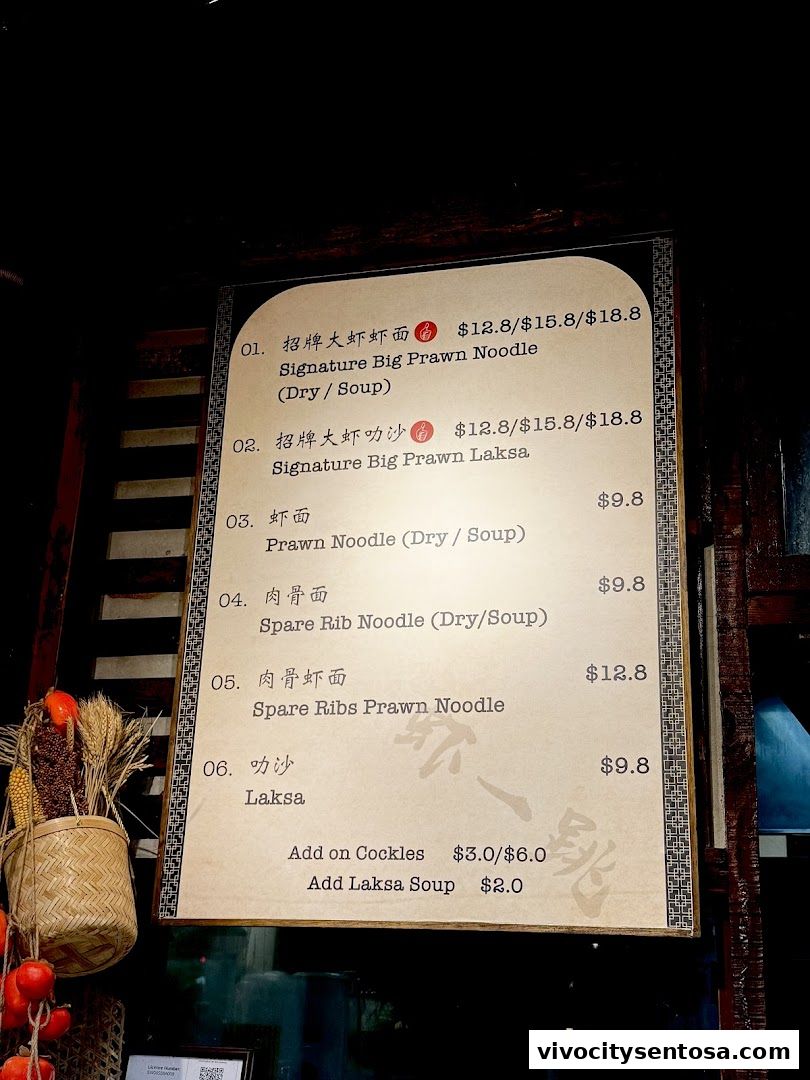 01. 招牌大虾虾面 $12.8/$15.8/$18.8
Signature Big Prawn Noodle
(Dry / Soup)
02. 招牌大虾叻沙 $12.8/$15.8/$18.8
Signature Big Prawn Laksa
03. 虾面 $9.8
Prawn Noodle (Dry / Soup)
04. 肉骨面 $9.8
Spare Rib Noodle (Dry/Soup)
05. 肉骨虾面 $12.8
Spare Ribs Prawn Noodle
06. 叻沙 $9.8
Laksa
虾一跳
Add on Cockles $3.0/$6.0
Add Laksa Soup $2.0
Licence Number:
vivocitysentosa.com